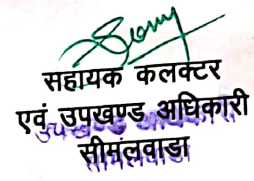 सहायक कलक्टर
एवं उपखण्ड अधिकारी
सीमलवाडा